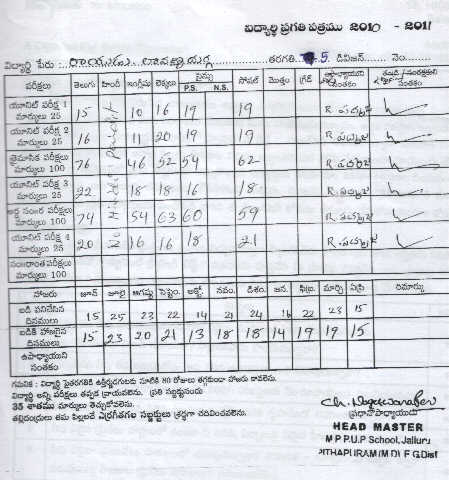 విద్యార్థి ప్రగతి పత్రము 2010 - 2011
విద్యార్థి పేరు : రాయుడు తరగతి 5 డివిజన్ నెం.
పరీక్షలు తెలుగు హిందీ ఇంగ్లీషు లెక్కలు సైన్సు P.S. N.S. సోషల్ మొత్తం గ్రేడ్ ఉపాధ్యాయుని సంతకం తండ్రి / సంరక్షకుని సంతకం
యూనిట్ పరీక్ష 1 మార్కులు 25 15 10 16 19 19 R. పద్మజ
యూనిట్ పరీక్ష 2 మార్కులు 25 16 11 20 19 19 R. పద్మజ
త్రైమాసిక పరీక్షలు మార్కులు 100 76 46 52 54 62 R. పద్మజ
యూనిట్ పరీక్ష 3 మార్కులు 25 22 18 18 16 18 R. పద్మజ
అర్థ సంవర పరీక్షలు మార్కులు 100 74 54 63 60 59 R. పద్మజ
యూనిట్ పరీక్ష 4 మార్కులు 25 20 16 16 18 21 R. పద్మజ
సంవరాంత పరీక్షలు మార్కులు 100
హాజరు జూన్ జూలై ఆగష్టు సెప్టెం. అక్టో. నవం. డిశం. జన. ఫిబ్ర. మార్చి ఏప్రి రిమార్కు
బడి పనిచేసిన దినములు 15 25 23 22 14 21 24 16 22 23 15
బడికి హాజరైన దినములు 15 23 20 21 13 18 18 14 19 19 15
ఉపాధ్యాయుని సంతకం
గమనిక : విద్యార్థి పైతరగతికి ఉత్తీర్ణుడగుటకు నూటికి 80 రోజులు తగ్గకుండా హాజరు కావలెను.
విద్యార్థి అన్ని పరీక్షలు తప్పక వ్రాయవలెను. ప్రతి సబ్జక్టునందు
35 శాతము మార్కులు తెచ్చుకోవలెను.
తల్లిదండ్రులు తమ పిల్లలచే సబ్జక్టులు శ్రద్ధగా చదివించవలెను.
Ch. Nageswararao
ప్రధానోపాధ్యాయుడు
HEAD MASTER
M P P.U.P School, Jalluru
PITHAPURAM (M D) E G Dist